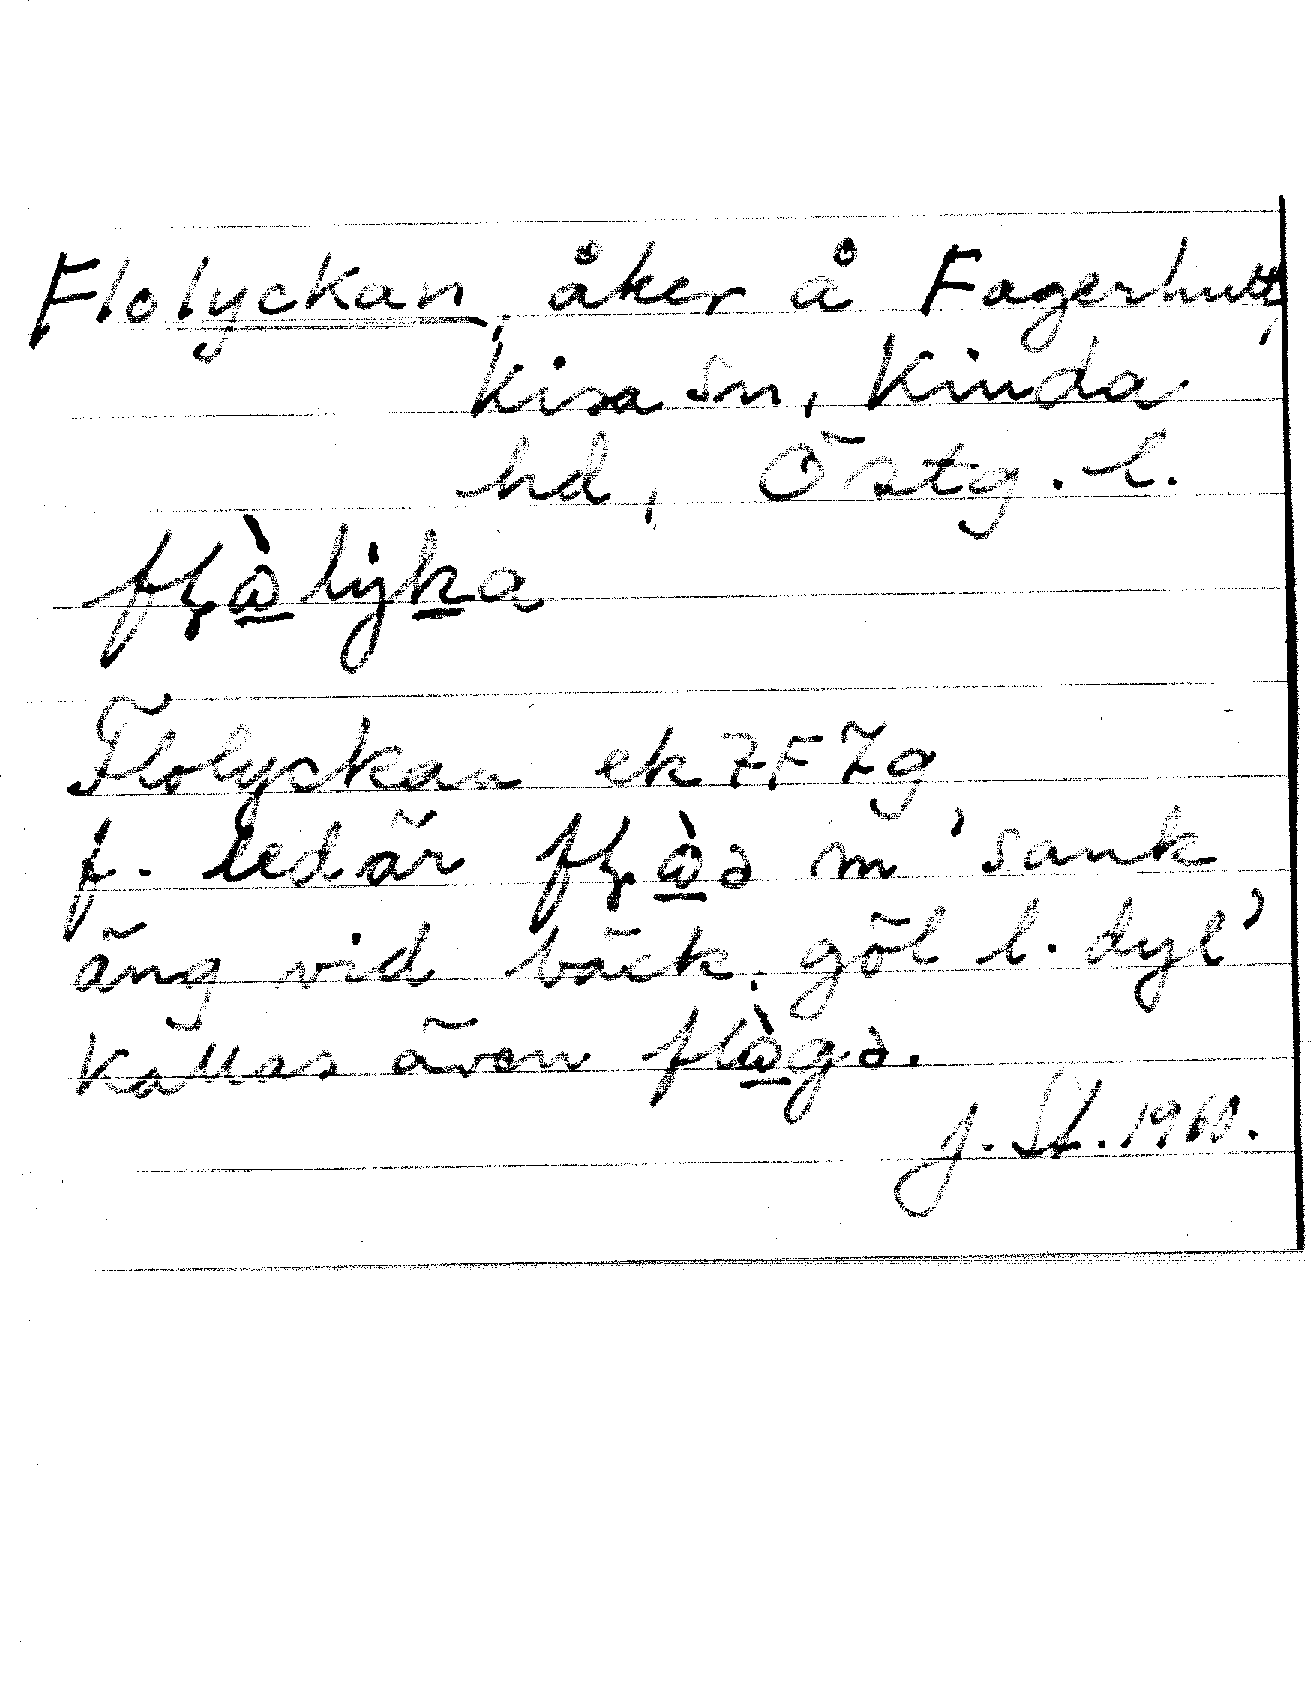 Flolyckan, åker å Fagerhult,
Kisa sn, Kinda
hd, Östg. l.
fɭὼlẏka
Flolyckan ek 7F7g
f. led är fɭὼə m 'sank
äng vid bäck, göl l. dyl'
Kallas även flὼgə.
J. St. 1960.